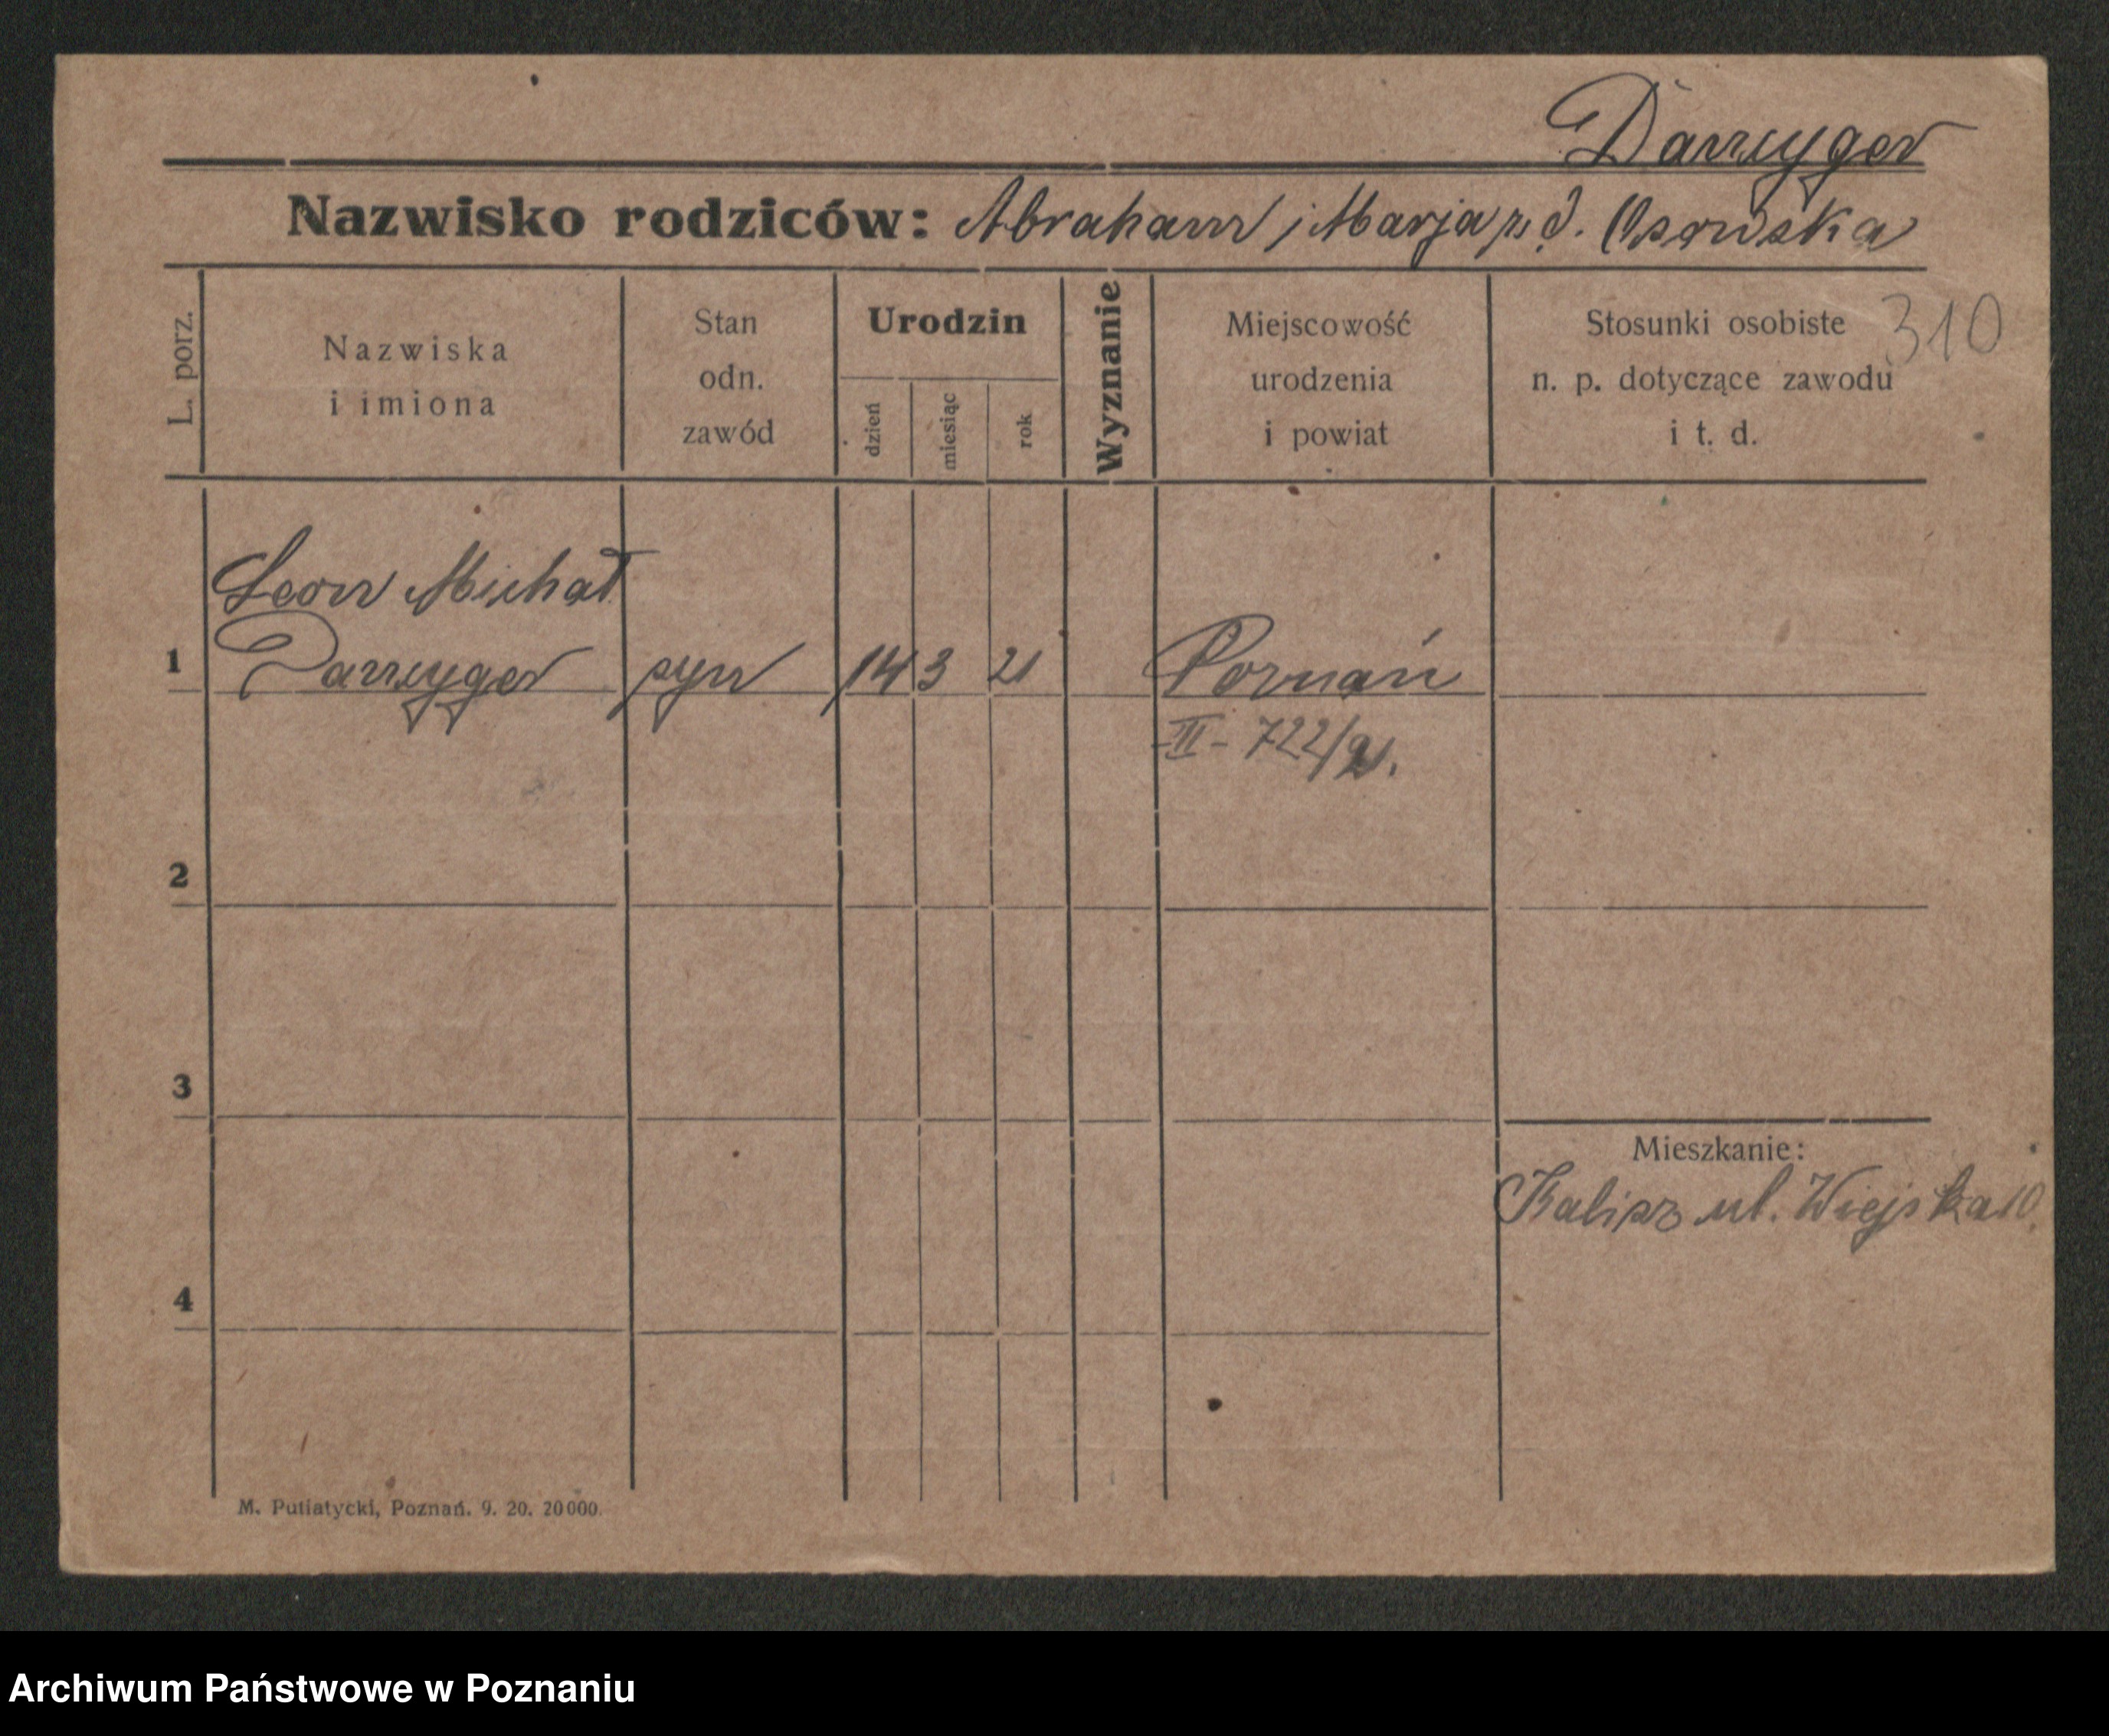 Dancyger
Nazwisko rodziców: Abraham i Marja z d. Osowska
310
L. porz.
Nazwiska
i imiona
Stan
odn.
zawód
Urodzin
dzień
miesiąc
rok
Wyznanie
Miejscowość
urodzenia
i powiat
Stosunki osobiste
n. p. dotyczące zawodu
i t. d.
Leon Michał
1 Dancyger syn 14 3 21 Poznań
-II- 722/21.
2
3
Mieszkanie:
Kalisz ul. Wiejska 10.
4
M. Putiatycki, Poznań. 9. 20. 20 000.
Archiwum Państwowe w Poznaniu